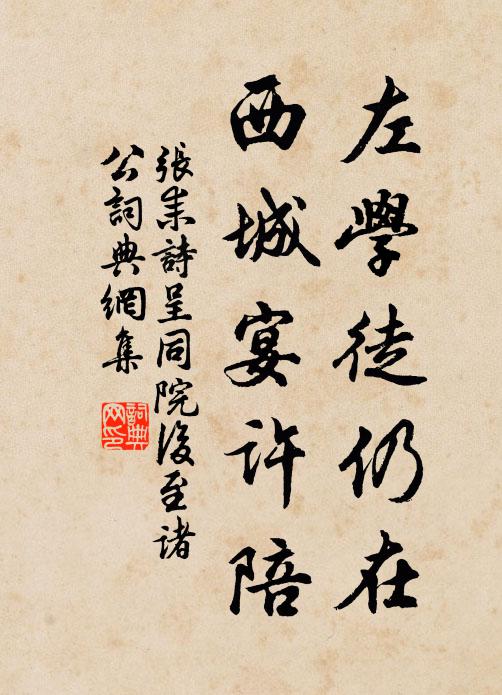 左學徒仍在
西城宴許陪
張耒詩呈同院後至諸
公詞典網集
詞典
网印